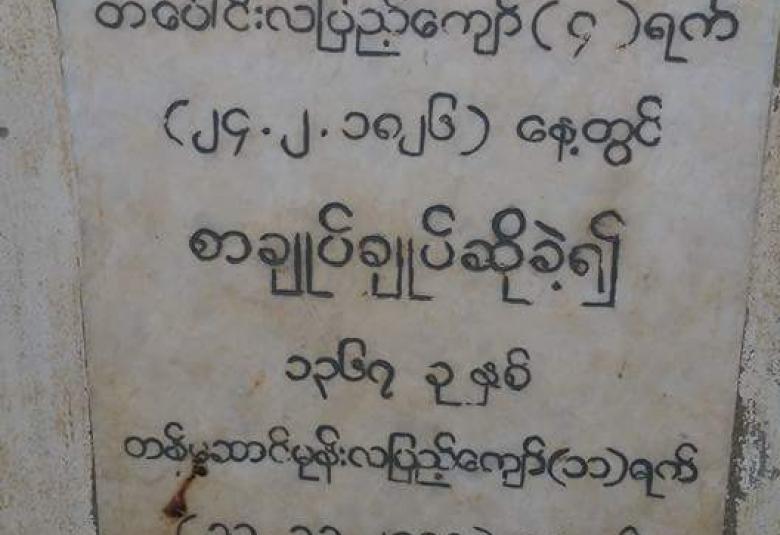 တပေါင်းလပြည့်ကျော်(၄)ရက်
(၂၄.၂.၁၈၂၆) နေ့တွင်
စာချုပ်ချုပ်ဆိုခဲ့၍
၁၃၆၇ ခုနှစ်
တန်ဆောင်မုန်းလပြည့်ကျော်(၁၁)ရက်